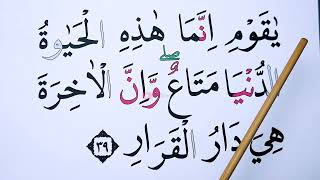 يٰقَوْمِ اِنَّمَا هٰذِهِ الْحَيٰوةُ
الدُّنْيَا مَتَاعٌ ۖ وَّاِنَّ الْاٰخِرَةَ
هِيَ دَارُ الْقَرَارِ ﴿٣٩﴾